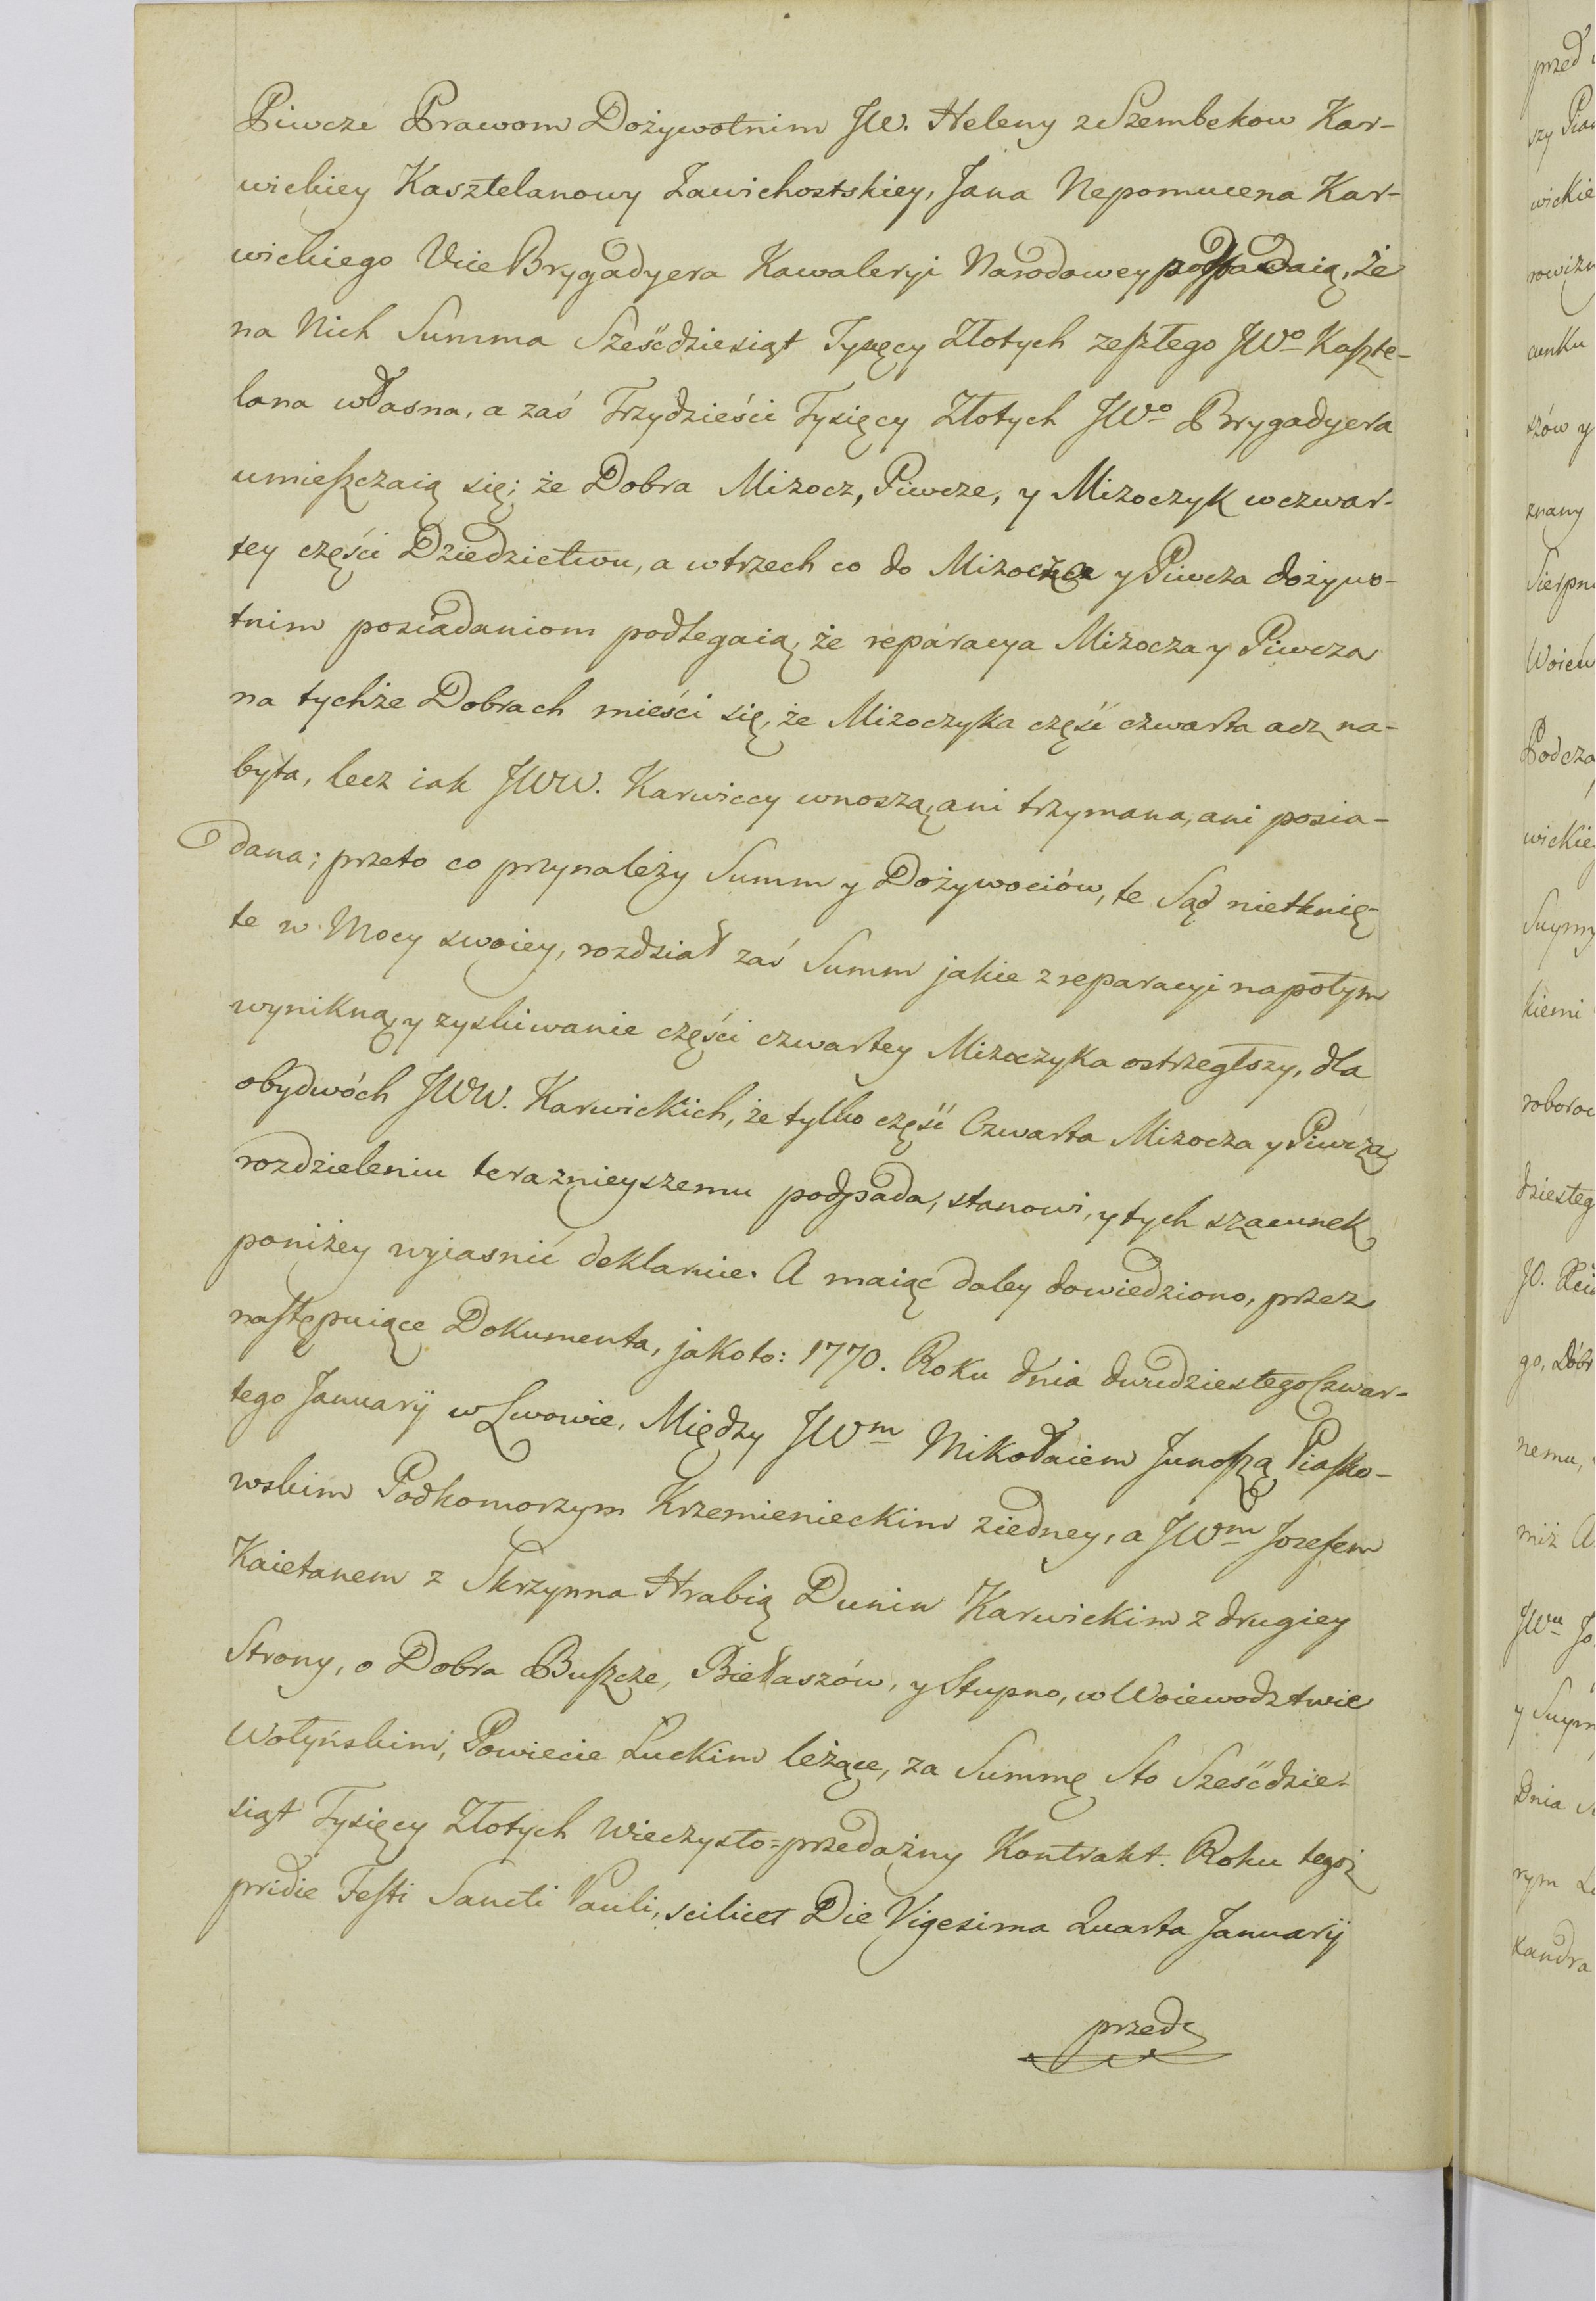 Piwcze Prawom Dożywotnim JW. Heleny z Szembekow Kar-
wickiey Kasztelanowy Zawichostskiey, Jana Nepomucena Kar-
wickiego Vice Brygadyera Kawaleryi Narodowey podpadaią, że
na Nich Summa Sześćdziesiąt Tysięcy Złotych zeszłego JWo Kaszte-
lana własna, a zaś Trzydzieści Tysięcy Złotych JWo Brygadyera
umieszczaią się; że Dobra Mizocz, Piwcze, y Mizoczyk w czwar-
tey części Dziedzictwu, a w trzech co do Mizocza y Piwcza dożywo-
tnim posiadaniom podlegaią, że reparacya Mizocza y Piwcza
na tychże Dobrach mieści się, że Mizoczyka część czwarta acz na-
byta, lecz iak JWW. Karwiccy wnoszą, ani trzymana, ani posia-
dana; przeto co przynależy Summ y Dożywociów, te Sąd nietknię-
te w Mocy swoiey, rozdział zaś Summ jakie z reparacyi napotym
wynikną, y zyskiwanie części czwartey Mizoczyka ostrzegłszy, dla
obydwóch JWW. Karwickich, że tylko część Czwarta Mizocza y Piwcza
rozdzieleniu teraznieyszemu podpada, stanowi, y tych szacunek
poniżey wyiasnić deklaruie. A maiąc daley dowiedziono, przez
następuiące Dokumenta, jakoto: 1770. Roku dnia dwudziestego Czwar-
tego Januarij w Lwowie, Między JWm Mikołaiem Junoszą Piasko-
wskim Podkomorzym Krzemienieckim z iedney, a JWm Jozefem
Kaietanem z Skrzynna Hrabią Dunin Karwickim z drugiey
Strony, o Dobra Buszcze, Biełaszów, y Stupno, w Woiewodztwie
Wołyńskim, Powiecie Łuckim leżące, za Summę Sto Sześćdzie-
siąt Tysięcy Złotych Wieczysto=przedażny Kontrakt. Roku tegoż
pridie Festi Sancti Pauli, scilicet Die Vigesima Quarta Januarij
przed